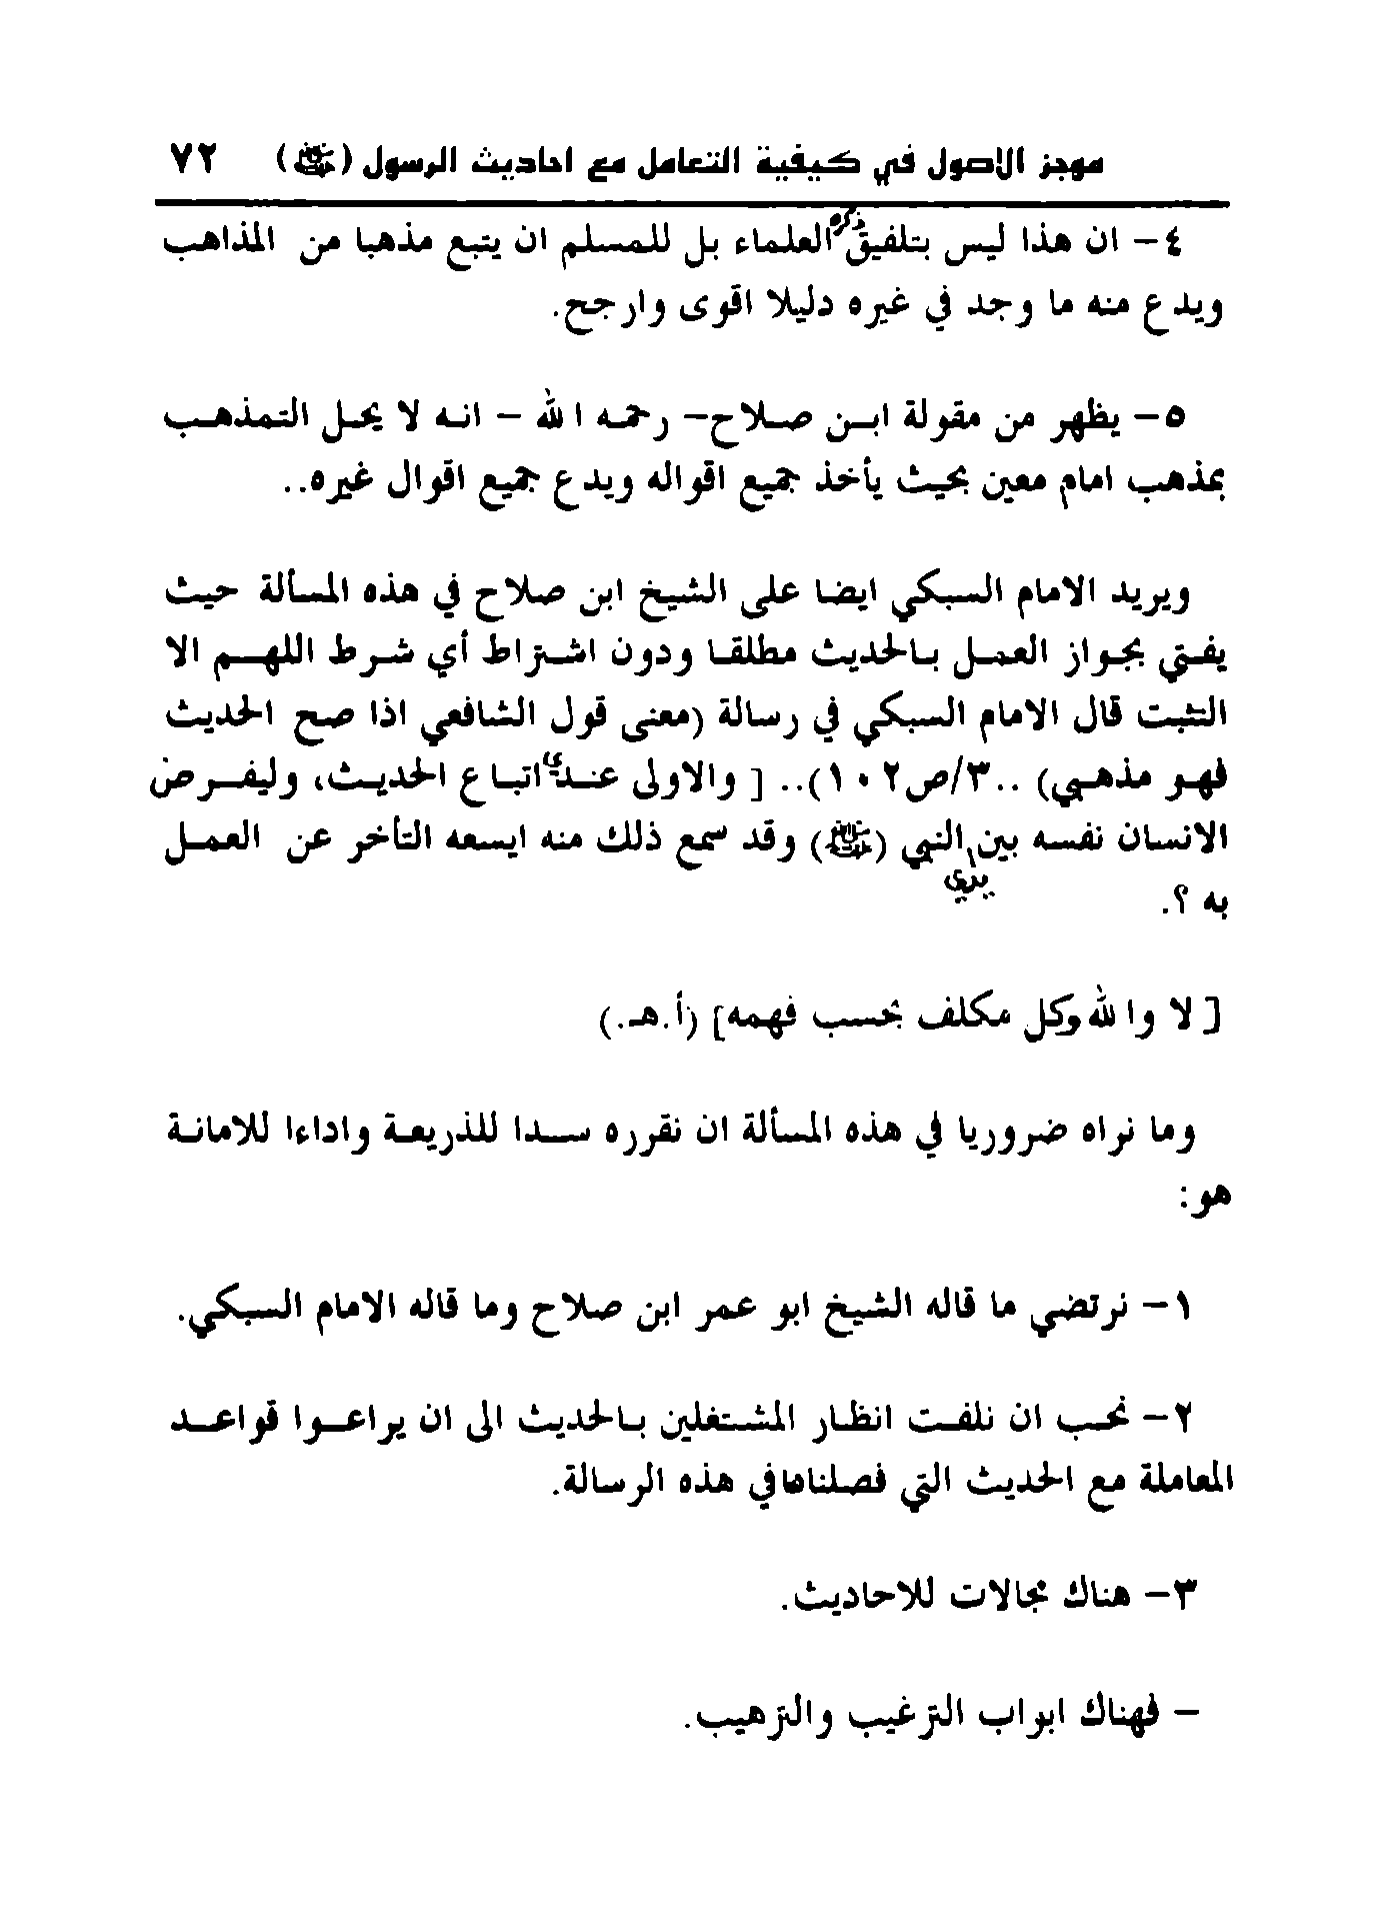 موجز الاصول في كيفية التعامل مع احاديث الرسول (ﷺ) ٧٢
٤- ان هذا ليس بتلفيق ذكره العلماء بل للمسلم ان يتبع مذهبا من المذاهب
ويدع منه ما وجد في غيره دليلا اقوى وارجح.
٥- يظهر من مقولة ابن صلاح- رحمه الله - انه لا يحل التمذهب
بمذهب امام معين بحيث يأخذ جميع اقواله ويدع جميع اقوال غيره..
ويريد الامام السبكي ايضا على الشيخ ابن صلاح في هذه المسألة حيث
يفتي بجواز العمل بالحديث مطلقا ودون اشتراط أي شرط اللهم الا
التثبت قال الامام السبكي في رسالة (معنى قول الشافعي اذا صح الحديث
فهو مذهبي) ..٣/ص١٠٢).. [ والاولى عندي اتباع الحديث، وليفرض
الانسان نفسه بين يدي النبي (ﷺ) وقد سمع ذلك منه ايسعه التأخر عن العمل
به ؟.
[ لا والله وكل مكلف بحسب فهمه] (أ.هـ.)
وما نراه ضروريا في هذه المسألة ان نقرره سدا للذريعة واداءا للامانة
هو:
١- نرتضي ما قاله الشيخ ابو عمر ابن صلاح وما قاله الامام السبكي.
٢- نحب ان نلفت انظار المشتغلين بالحديث الى ان يراعوا قواعد
المعاملة مع الحديث التي فصلناها في هذه الرسالة.
٣- هناك مجالات للاحاديث.
- فهناك ابواب الترغيب والترهيب.